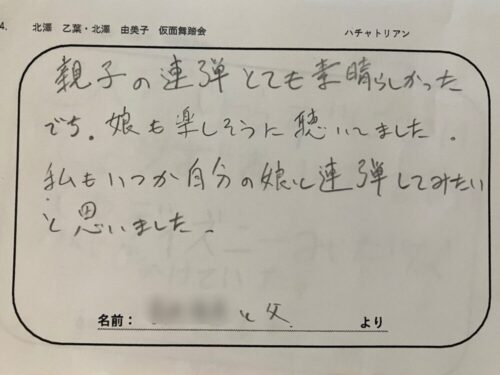 4. 北澤 乙葉・北澤 由美子 仮面舞踏会 ハチャトリアン
親子の連弾とても素晴らしかった
です。娘も楽しそうに聴いてました。
私もいつか自分の娘と連弾してみたい
と思いました。
名前： と父 より